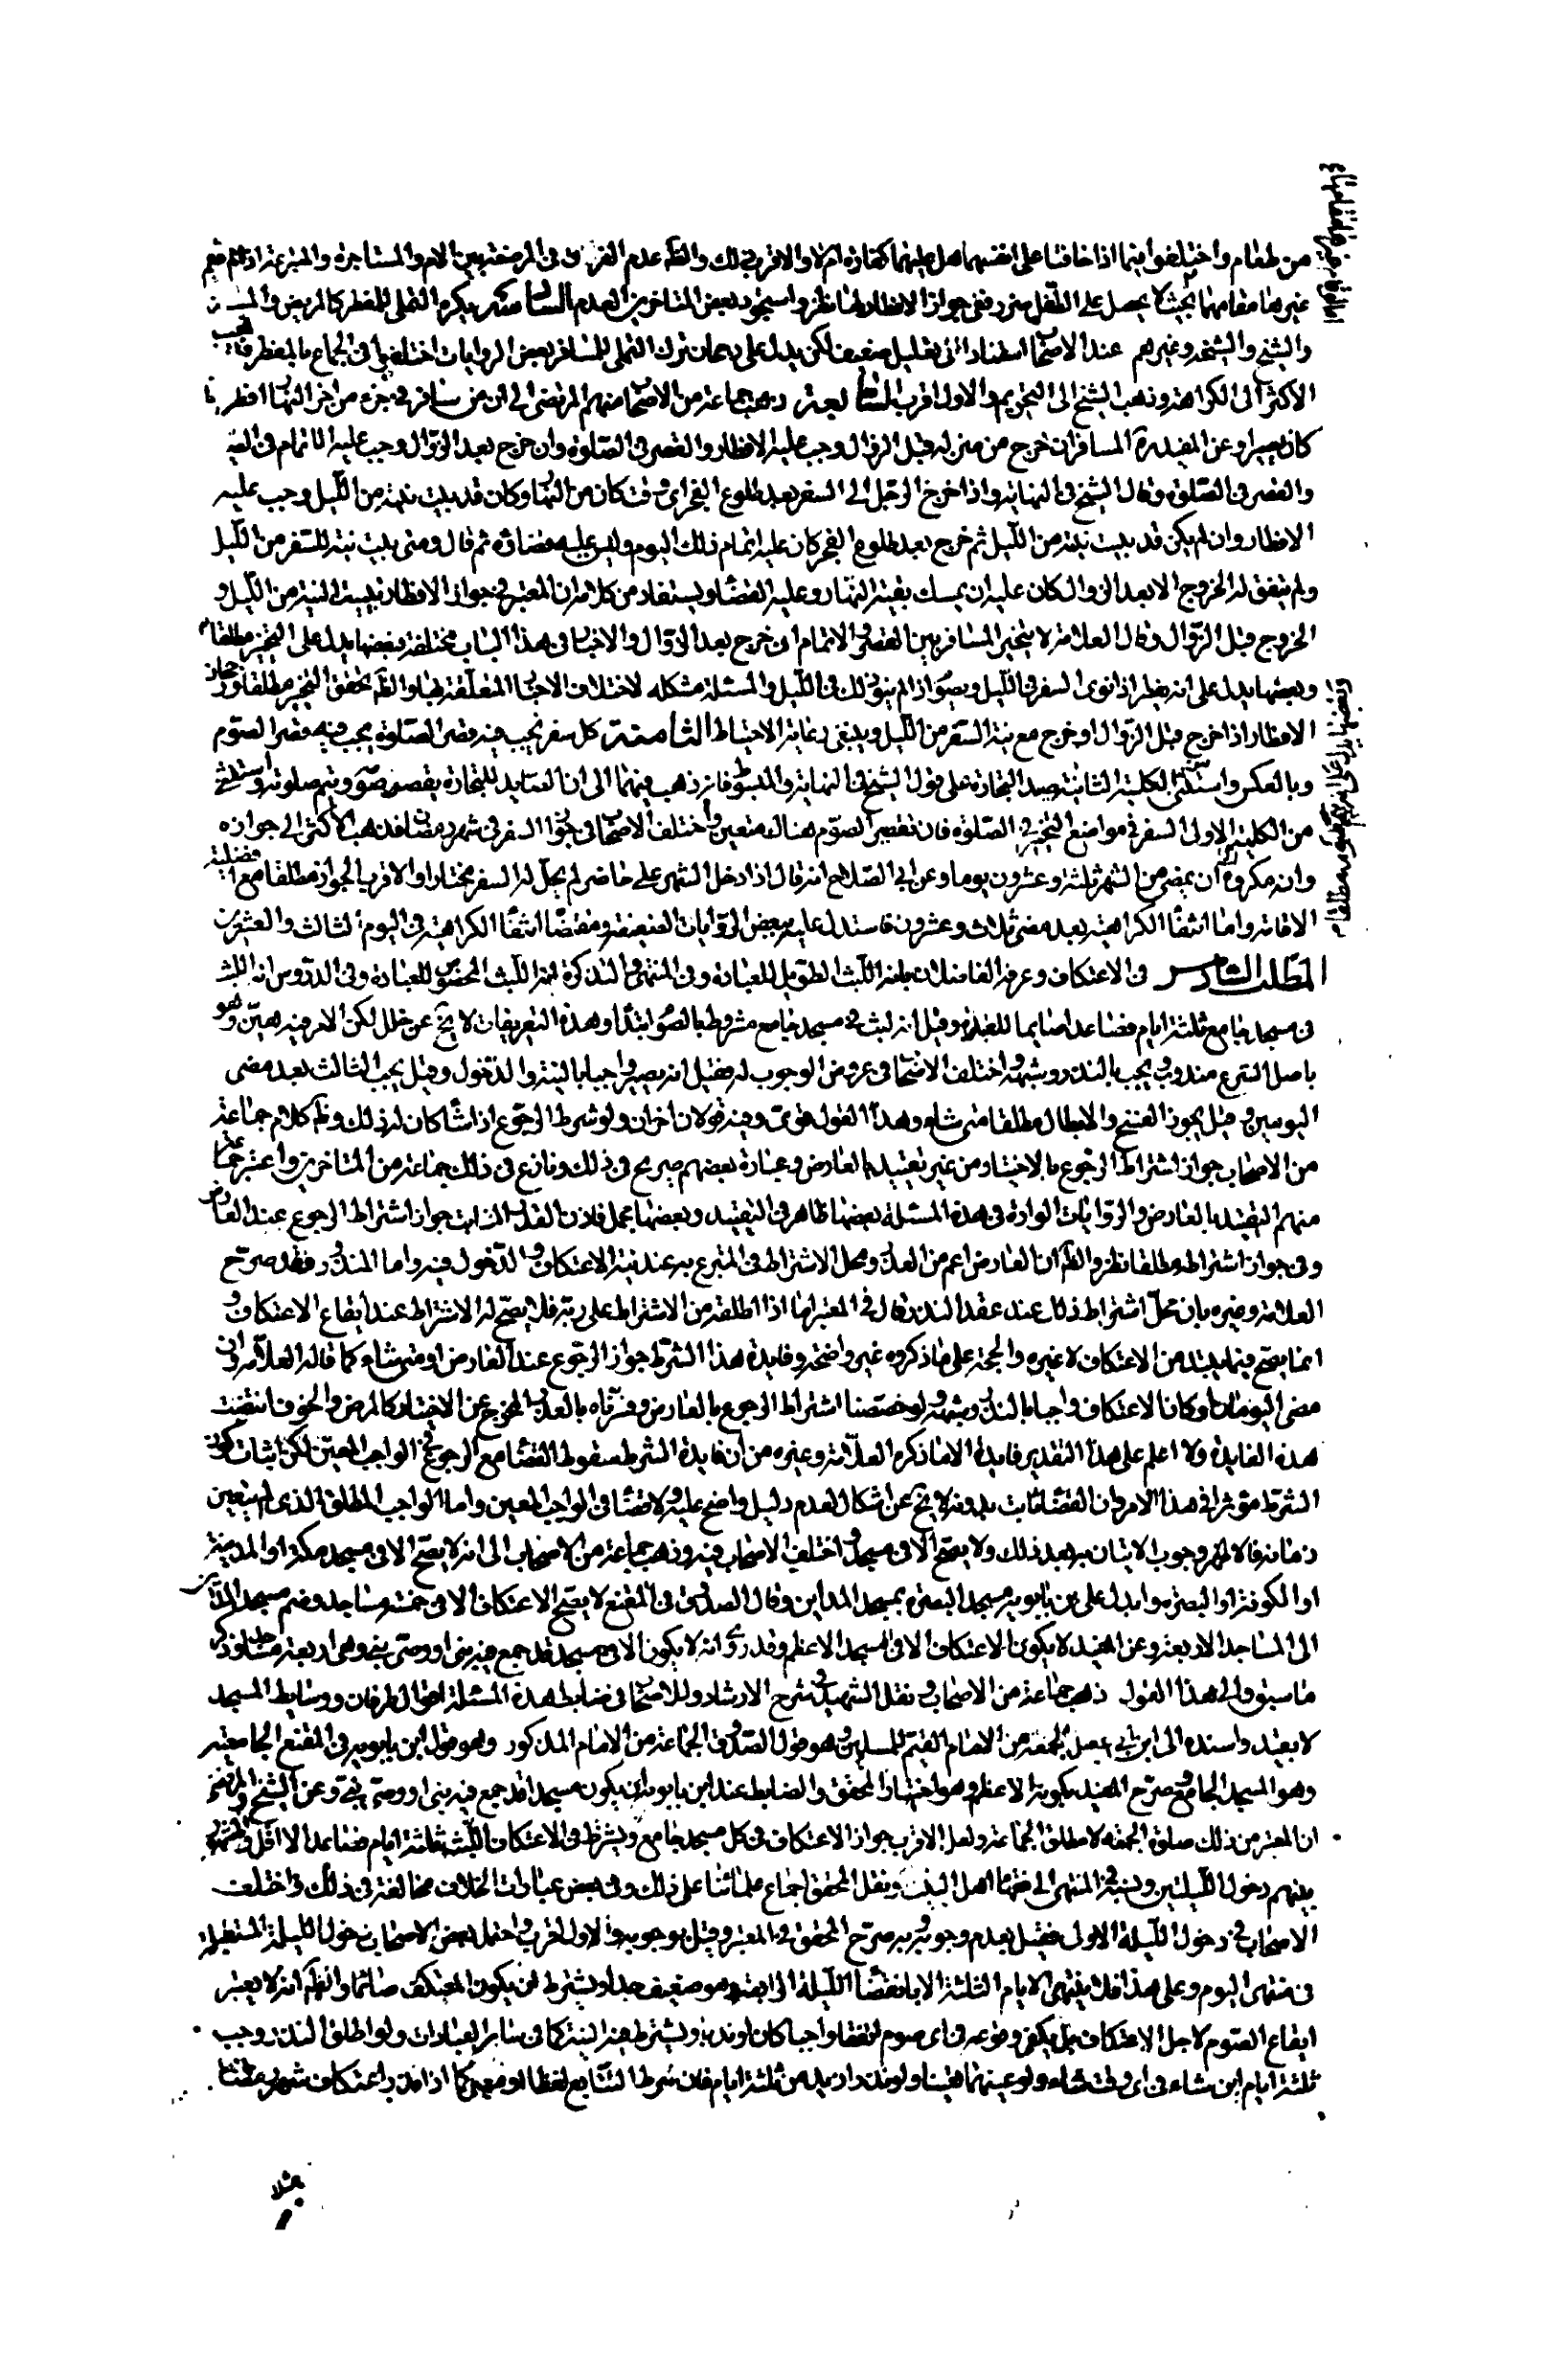 من طعام واختلفوا فيما اذا خافتا على انفسهما هل عليهما كفارة ام لا والاقرب ذلك والظ عدم الفرق فى المرضعة بين الام والمستاجرة والمتبرعة اذا لم يقم
غيرها مقامها بحيث لا يحصل على الطفل ضرر ففى جواز الافطار لها نظر واستجود بعض المتاخرين العدم السادسة يكره التملى للمفطر كالمريض والمسافر
والشيخ والشيخة وغيرهم عند الاصحاب استنادا الى تعليل ضعيف لكن يدل على رجحان ترك التملى للمسافر بعض الروايات اختلفوا فى الجماع بالمفطر فذهب
الاكثر الى الكراهة وذهب الشيخ الى التحريم والاول اقرب السابعة ذهب جماعة من الاصحاب منهم المرتضى الى ان من سافر فى جزء من اجزاء النهار افطر وان
كان يسيرا وعن المفيد ره المسافر ان خرج من منزله قبل الزوال وجب عليه الافطار والقصر فى الصلوة وان خرج بعد الزوال وجب عليه الاتمام فى الصيام
والقصر فى الصلوة وقال الشيخ فى النهاية واذا خرج الرجل الى السفر بعد طلوع الفجر اى وقت كان من النهار وكان قد بيت نيته من الليل وجب عليه
الافطار وان لم يكن قد بيت نيته من الليل ثم خرج بعد طلوع الفجر كان عليه اتمام ذلك اليوم وليس عليه قضاؤه ثم قال ومتى بيت نيته للسفر من الليل
ولم يتفق له الخروج الا بعد الزوال كان عليه ان يمسك بقية النهار وعليه القضاء ويستفاد من كلامه ان المعتبر فى جواز الافطار تبييت النية من الليل و
الخروج قبل الزوال وقال العلامة لا يتخير المسافر بين القصر والاتمام ان خرج بعد الزوال والاخبار فى هذا الباب مختلفة بعضها يدل على التخيير مطلقا
وبعضها يدل على انه يفطر اذا نوى السفر فى الليل ويصوم اذا لم ينو ذلك فى الليل والمسئلة مشكله لاختلاف الاخبار المتعلقة بها والظ تحقق التخيير مطلقا ورجحان
الافطار اذا خرج قبل الزوال او خرج مع نية السفر من الليل وينبغى رعاية الاحتياط الثامنة كل سفر يجب فيه قصر الصلوة يجب فيه قصر الصوم
وبالعكس واستثنى الكلية الثانية صيد التجارة على قول الشيخ فى النهاية والمبسوط فانه ذهب فيهما الى ان الصايد للتجارة يقصر صومه ويتم صلوته واستثنى
من الكلية الاولى السفر فى مواضع التخيير فى الصلوة فان تقصير الصوم هناك متعين واختلف الاصحاب فى جواز السفر فى شهر رمضان فذهب الاكثر الى جوازه
وانه مكروه الى ان يمضى من الشهر ثلثة وعشرون يوما وعن ابى الصلاح انه قال اذا دخل الشهر على حاضر لم يحل له السفر مختارا والاقرب الجواز مطلقا مع افضلية
الاقامة واما انتفاء الكراهية بعد مضى ثلاث وعشرون فاستدل عليه ببعض الروايات الضعيفة ومقتضاه انتفاء الكراهية فى اليوم الثالث والعشرين
المطلب السادس فى الاعتكاف وعرفه الفاضلان بانه اللبث الطويل للعبادة وفى المنتهى والتذكرة انه اللبث المخصوص للعبادة وفى الدروس انه اللبث
فى مسجد جامع ثلثة ايام فصاعدا صايما للعبادة وقيل انه لبث فى مسجد جامع مشروط بالصوم ابتداء وهذه التعريفات لا يخ عن خلل لكن الامر فيه هين وهو
باصل الشرع مندوب ويجب بالنذر وشبهه واختلف الاصحاب فى عروض الوجوب له فقيل انه يصير واجبا بالنية والدخول وقيل يجب الثالث بعد مضى
اليومين وقيل يجوز الفسخ والابطال مطلقا متى شاء وهذا القول قوى وفيه قولان اخران ولو شرط الرجوع اذا شاء كان له ذلك وظ كلام جماعة
من الاصحاب جواز اشتراط الرجوع بالاختيار من غير تقييد بالعارض وعبارة بعضهم صريح فى ذلك ونازع فى ذلك جماعة من المتاخرين واعتبر جماعة
منهم التقييد بالعارض والروايات الواردة فى هذه المسئلة بعضها ظاهر فى التقييد وبعضها مجمل فاذن القدر الثابت جواز اشتراط الرجوع عند العارض
وفى جواز اشتراطه مطلقا نظر والظ ان العارض اعم من العذر ومحل الاشتراط فى المتبرع به عند نية الاعتكاف والدخول فيه واما المنذور فقد صرح
العلامة وغيره بان محل اشتراط ذلك عند عقد النذر قال فى المعتبر اما اذا اطلقه من الاشتراط على ربه فلا يصح له الاشتراط عند ايقاع الاعتكاف و
انما يصح فيما يبتدئ من الاعتكاف لا غيره والحجة على ما ذكروه غير واضحة وفايدة هذا الشرط جواز الرجوع عند العارض او متى شاء كما قاله العلامة وان
مضى اليومان او كان الاعتكاف واجبا بالنذر وشبهه ولو خصصنا اشتراط الرجوع بالعارض وفسرناه بالعذر المخرج عن الاختيار كالمرض والخوف انتفت
هذه الفايدة ولا اعلم على هذا التقدير فايدة الا ما ذكره العلامة وغيره من ان فايدة الشرط سقوط القضاء مع الرجوع فى الواجب المعين لكن اثبات كون
الشرط مؤثرا فى هذا الامر وان القضاء ثابت بدونه لا يخ عن اشكال لعدم دليل واضح عليه ولا قضاء فى الواجب المعين واما الواجب المطلق الذى لم يتعين
زمانه فالاظهر وجوب الاتيان به بعد ذلك ولا يصح الا فى مسجد واختلف الاصحاب فيه وذهب جماعة من الاصحاب الى انه لا يصح الا فى مسجد مكة او المدينة
او الكوفة او البصرة وابدل على بن بابويه مسجد البصرة بمسجد المداين وقال الصدوق فى المقنع لا يصح الاعتكاف الا فى خمسة مساجد وضم مسجد المداين
الى المساجد الاربعة وعن المفيد لا يكون الاعتكاف الا فى المسجد الاعظم وقد روى انه لا يكون الا فى مسجد قد جمع فيه نبى او وصى نبى وهى اربعة مساجد وذكر
ما سبق والى هذا القول ذهب جماعة من الاصحاب ونقل الشهيد فى شرح الارشاد وللاصحاب فى ضابط هذه المسئلة اقوال طرفان ووسايط المسجد
لا بقيد واسنده الى ابن ابى عقيل الجمعة من الامام القيم للمسلمين وهو قول الصدوق الجماعة من الامام المذكور وهو قول ابن بابويه فى المقنع الجامعية
وهو المسجد الجامع وصرح المفيد بكونه الاعظم وهو اختيار المحقق والضابط عند ابن بابويه ان يكون مسجدا قد جمع فيه نبى او وصى نبى وعن الشيخ والمرتضى
ان المعتبر من ذلك صلوة الجمعه لا مطلق الجماعة ولعل الاقرب جواز الاعتكاف فى كل مسجد جامع ويشترط فى الاعتكاف اللبث ثلثة ايام فصاعدا لا اقل والمشهور
بينهم دخول الليلتين ونسبه فى المنتهى الى فقهاء اهل البيت ونقل المحقق اجماع علمائنا على ذلك وفى بعض عبارات الخلاف مخالفة فى ذلك واختلف
الاصحاب فى دخول الليلة الاولى فقيل بعدم وجوبه وبه صرح المحقق فى المعتبر وقيل بوجوبه والاول اقرب واحتمل بعض الاصحاب دخول الليلة المستقبلة
فى منتهى اليوم وعلى هذا فلا ينتهى الايام الثلثة الا بانقضاء الليلة الرابعة وهو ضعيف جدا ويشترط ان يكون المعتكف صائما والظ انه لا يعتبر
ايقاع الصوم لاجل الاعتكاف بل يكفى وقوعه فى اى صوم اتفق واجبا كان او ندبا ويشترط فيه النية كما فى ساير العبادات ولو اطلق النذر وجب
ثلثة ايام اين شاء فى اى وقت شاء ولو عينهما تعينا ولو نذر ازيد من ثلثة ايام فان شرط التتابع لفظا او معنى كما اذا نذر اعتكاف شهر رمضان
مثلا
وبعضها يدل على انه يتم صومه مطلقا